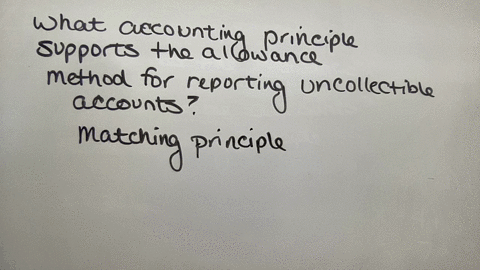 What accounting principle
supports the allowance
method for reporting uncollectible
accounts?
Matching principle